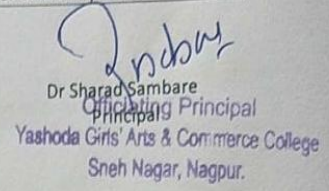 Dr Sharad Sambare
Officiating Principal
Principal
Yashoda Girls' Arts & Commerce College
Sneh Nagar, Nagpur.